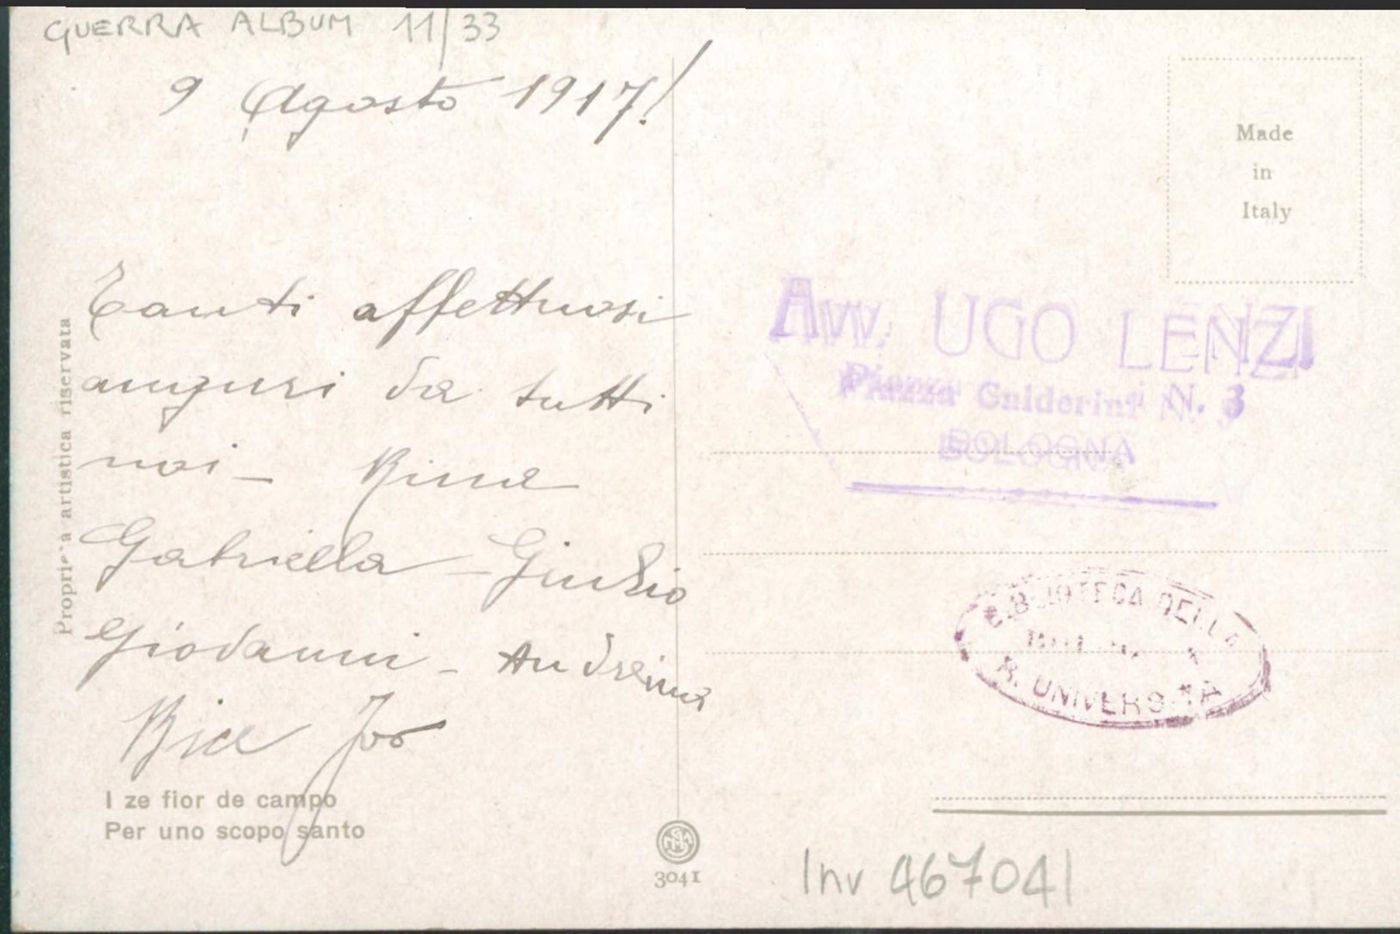 GUERRA ALBUM 11/33
9 Agosto 1917!
Tanti affettuosi
auguri da tutti
noi - Rina
Gabriella - Giulio
Giovanni - Andreina
Bice
I ze fior de campo
Per uno scopo santo
Proprietà artistica riservata
3041
Made
in
Italy
Avv. UGO LENZI
Piazza Galderini N. 3
BOLOGNA
BIBLIOTECA DELLA
R. UNIVERSITÀ
Inv 467041